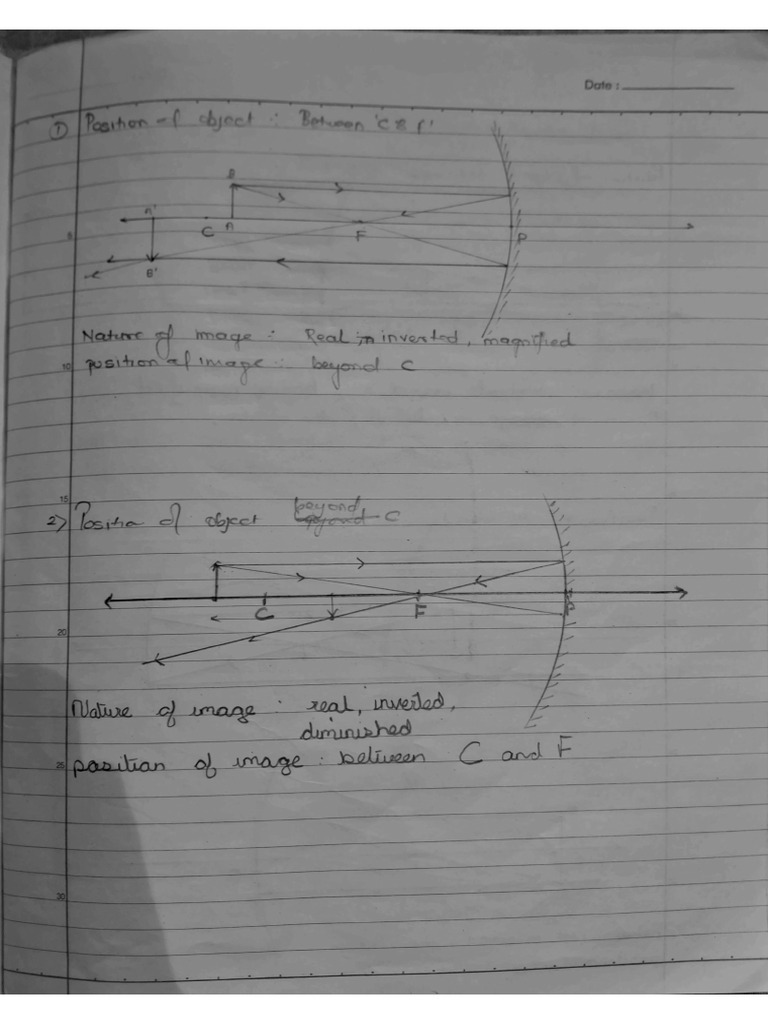 Date :
① Position of object : Between 'C & f'
B
A' C A F P
5
B'
Nature of image : Real, inverted, magnified
10 position of image : beyond C
15
beyond
2) Positin of object C
C F
20
Nature of image : real, inverted,
diminished
25 position of image : between C and F
30